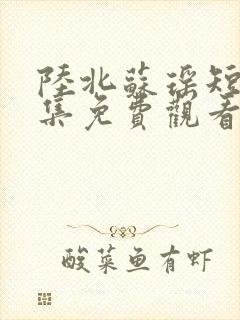 陸北蘇瑶短
集免費觀看
酸菜鱼有虾